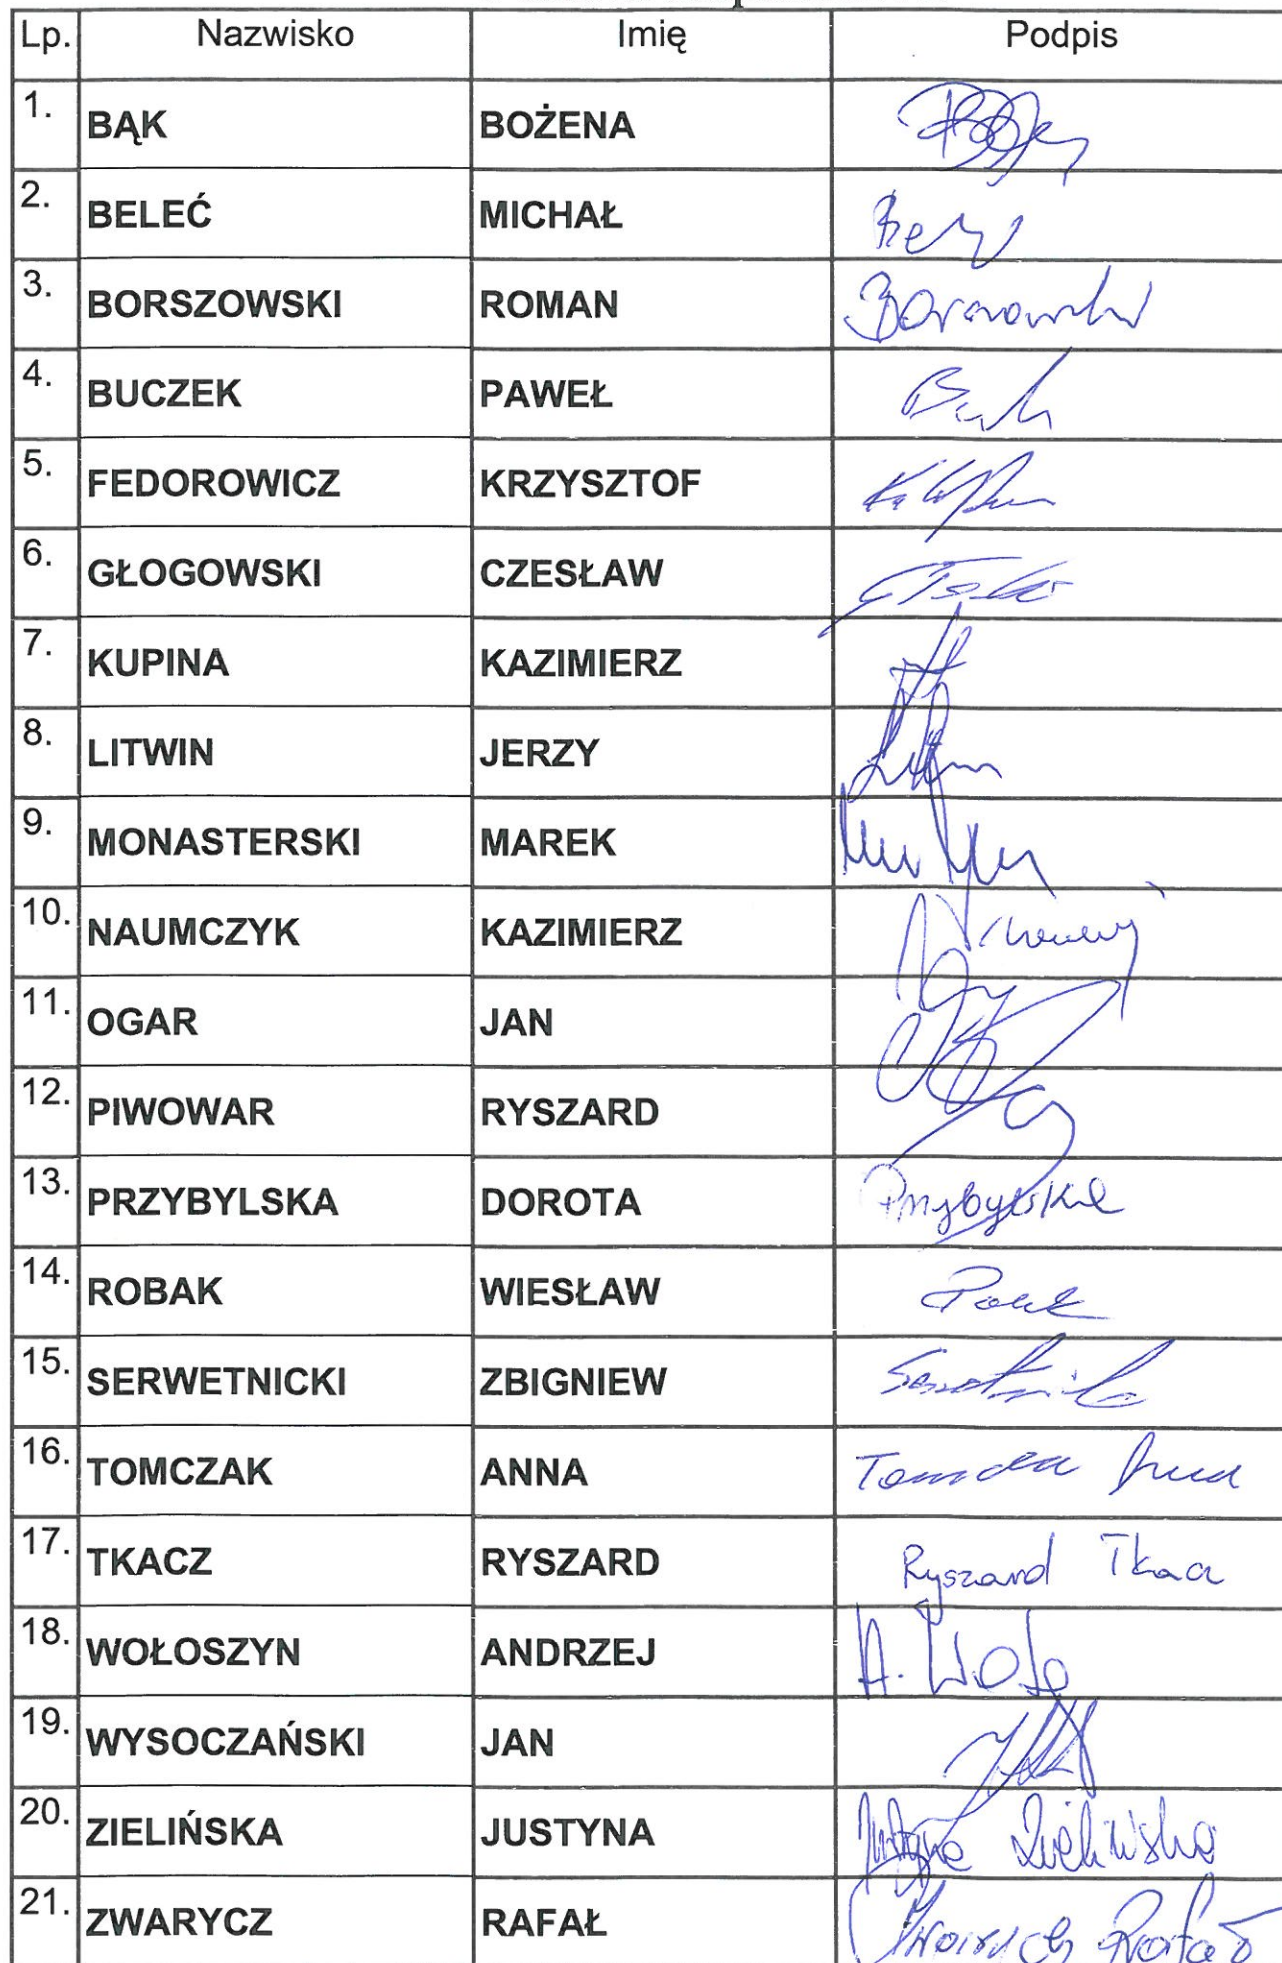 Lp. Nazwisko Imię Podpis
1. BĄK BOŻENA
2. BELEĆ MICHAŁ
3. BORSZOWSKI ROMAN
4. BUCZEK PAWEŁ
5. FEDOROWICZ KRZYSZTOF
6. GŁOGOWSKI CZESŁAW
7. KUPINA KAZIMIERZ
8. LITWIN JERZY
9. MONASTERSKI MAREK
10. NAUMCZYK KAZIMIERZ
11. OGAR JAN
12. PIWOWAR RYSZARD
13. PRZYBYLSKA DOROTA Przybylska
14. ROBAK WIESŁAW
15. SERWETNICKI ZBIGNIEW
16. TOMCZAK ANNA
17. TKACZ RYSZARD Ryszard Tkacz
18. WOŁOSZYN ANDRZEJ A. Woło
19. WYSOCZAŃSKI JAN
20. ZIELIŃSKA JUSTYNA Justyna Zielińska
21. ZWARYCZ RAFAŁ Zwarycz Rafał